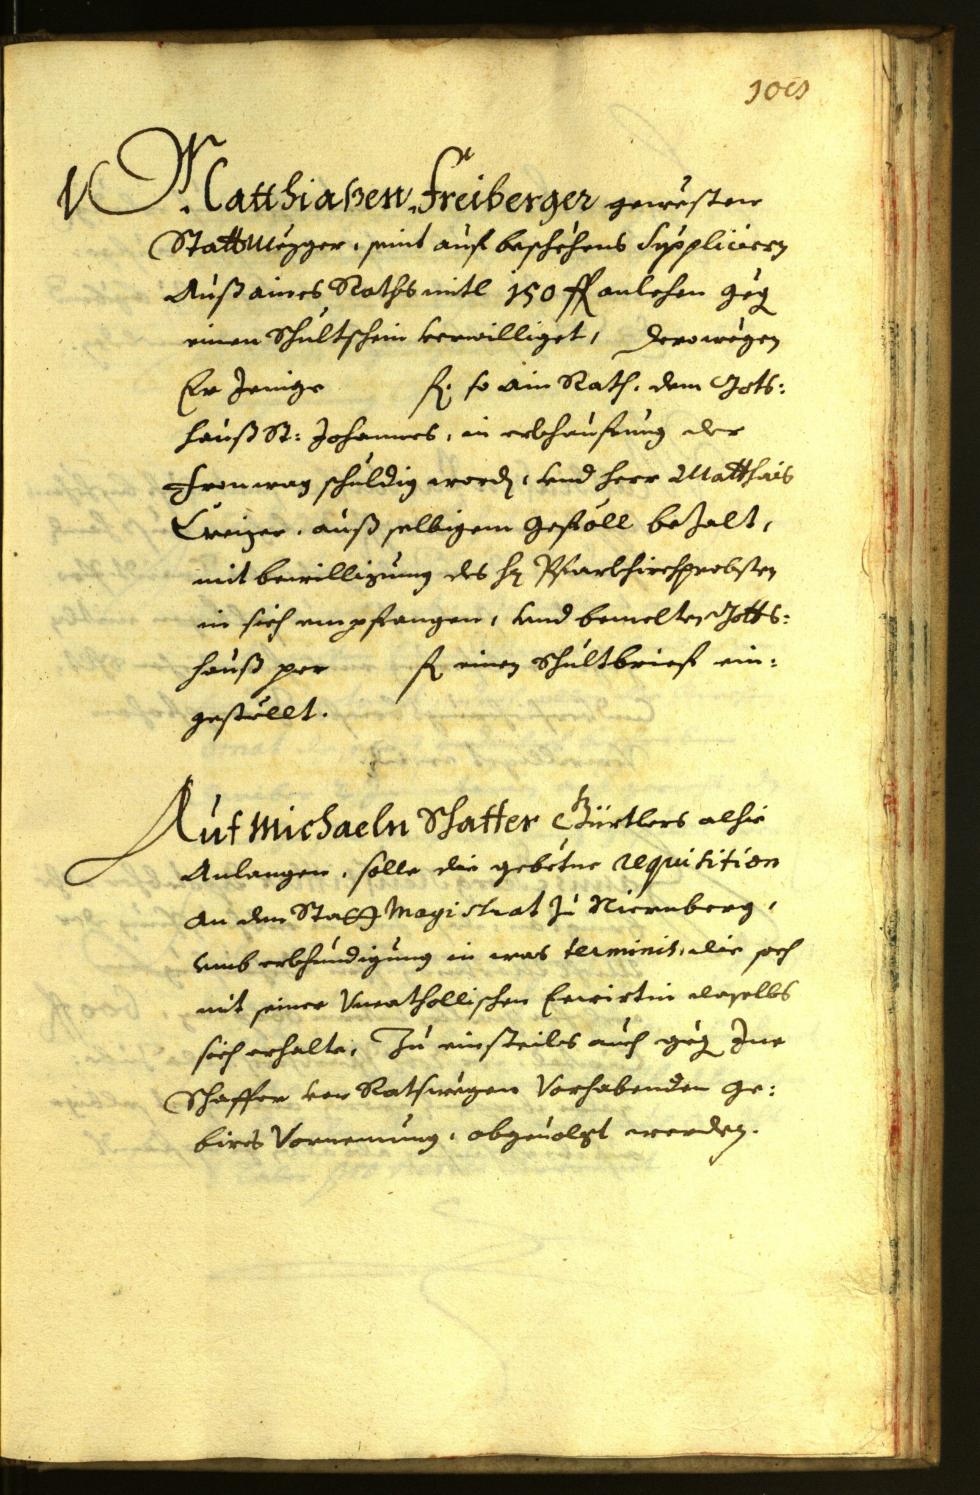 Matthiaßen Freiberger gewesten
StattMezger, seint auf beschehens Suppliciern
Auß aines Raths mitl 150 ff anlehen geg
einen Schultschein verwilliget, derowegen
Er Jenige f. so ain Rath, dem Gots:
hauß St: Johannes, in erkhauffung der
Fronwag schuldig word, und herr Matthias
Creizer, auß selbigem Geföll bezalt,
mit bewilligung des h Pfarkhirchprobsten
in sich empfangen, und bemelten Gotts:
hauß per f einen Schultbrief ein:
gestellt.
Auf Michaeln Schaffer Gürtlers alhie
Anlangen, solle die gebetne requisition
an den Statt Magistrat zu Niernberg,
umb erkhundigung in was terminis, die sach
mit seiner Uncathollischen Ewirtin daselbs
sich erhalte, Zu einsteiles auch geg Ine
Schaffer von Rathswegen Vorhabenden ge:
bires Vornemung, abgeuolgt werden.